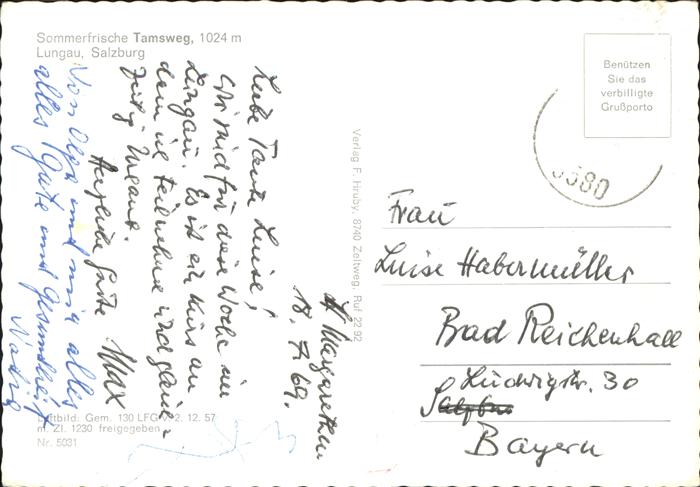 Sommerfrische Tamsweg, 1024 m
Lungau, Salzburg
St Margarethen
18. 7. 69.
Liebe Tante Luise!
Wir sind für diese Woche im
Lungau. Es ist ein Kurs an
dem ich teilnehme und gleich-
zeitig Urlaub.
Herzliche Grüße
Max
Von Olga und mir alles
alles Gute und Gesundheit
Verlag F. Hruby, 8740 Zeltweg, Ruf 22 92
Benützen
Sie das
verbilligte
Grußporto
5580
Frau
Luise Habermüller
Bad Reichenhall
Ludwigstr. 30
Bayern
Luftbild: Gem. 130 LFG v. 2. 12. 57
m. Zl. 1230 freigegeben
Nr. 5031